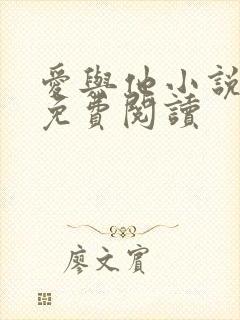 愛與他小說
免費閱讀
廖文賓